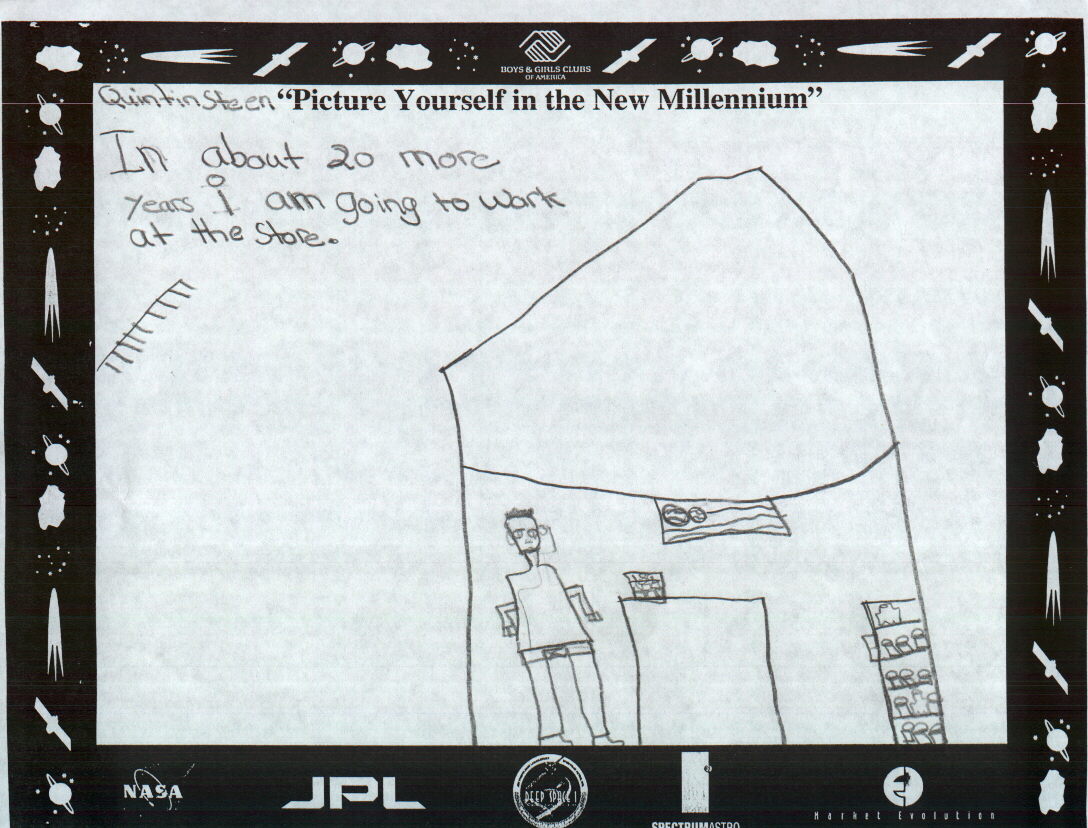 BOYS & GIRLS CLUBS
OF AMERICA
Quintin Steen "Picture Yourself in the New Millennium"
In about 20 more
years i am going to work
at the store.
NASA
JPL
DEEP SPACE 1
SPECTRUMASTRO
Market Evolution